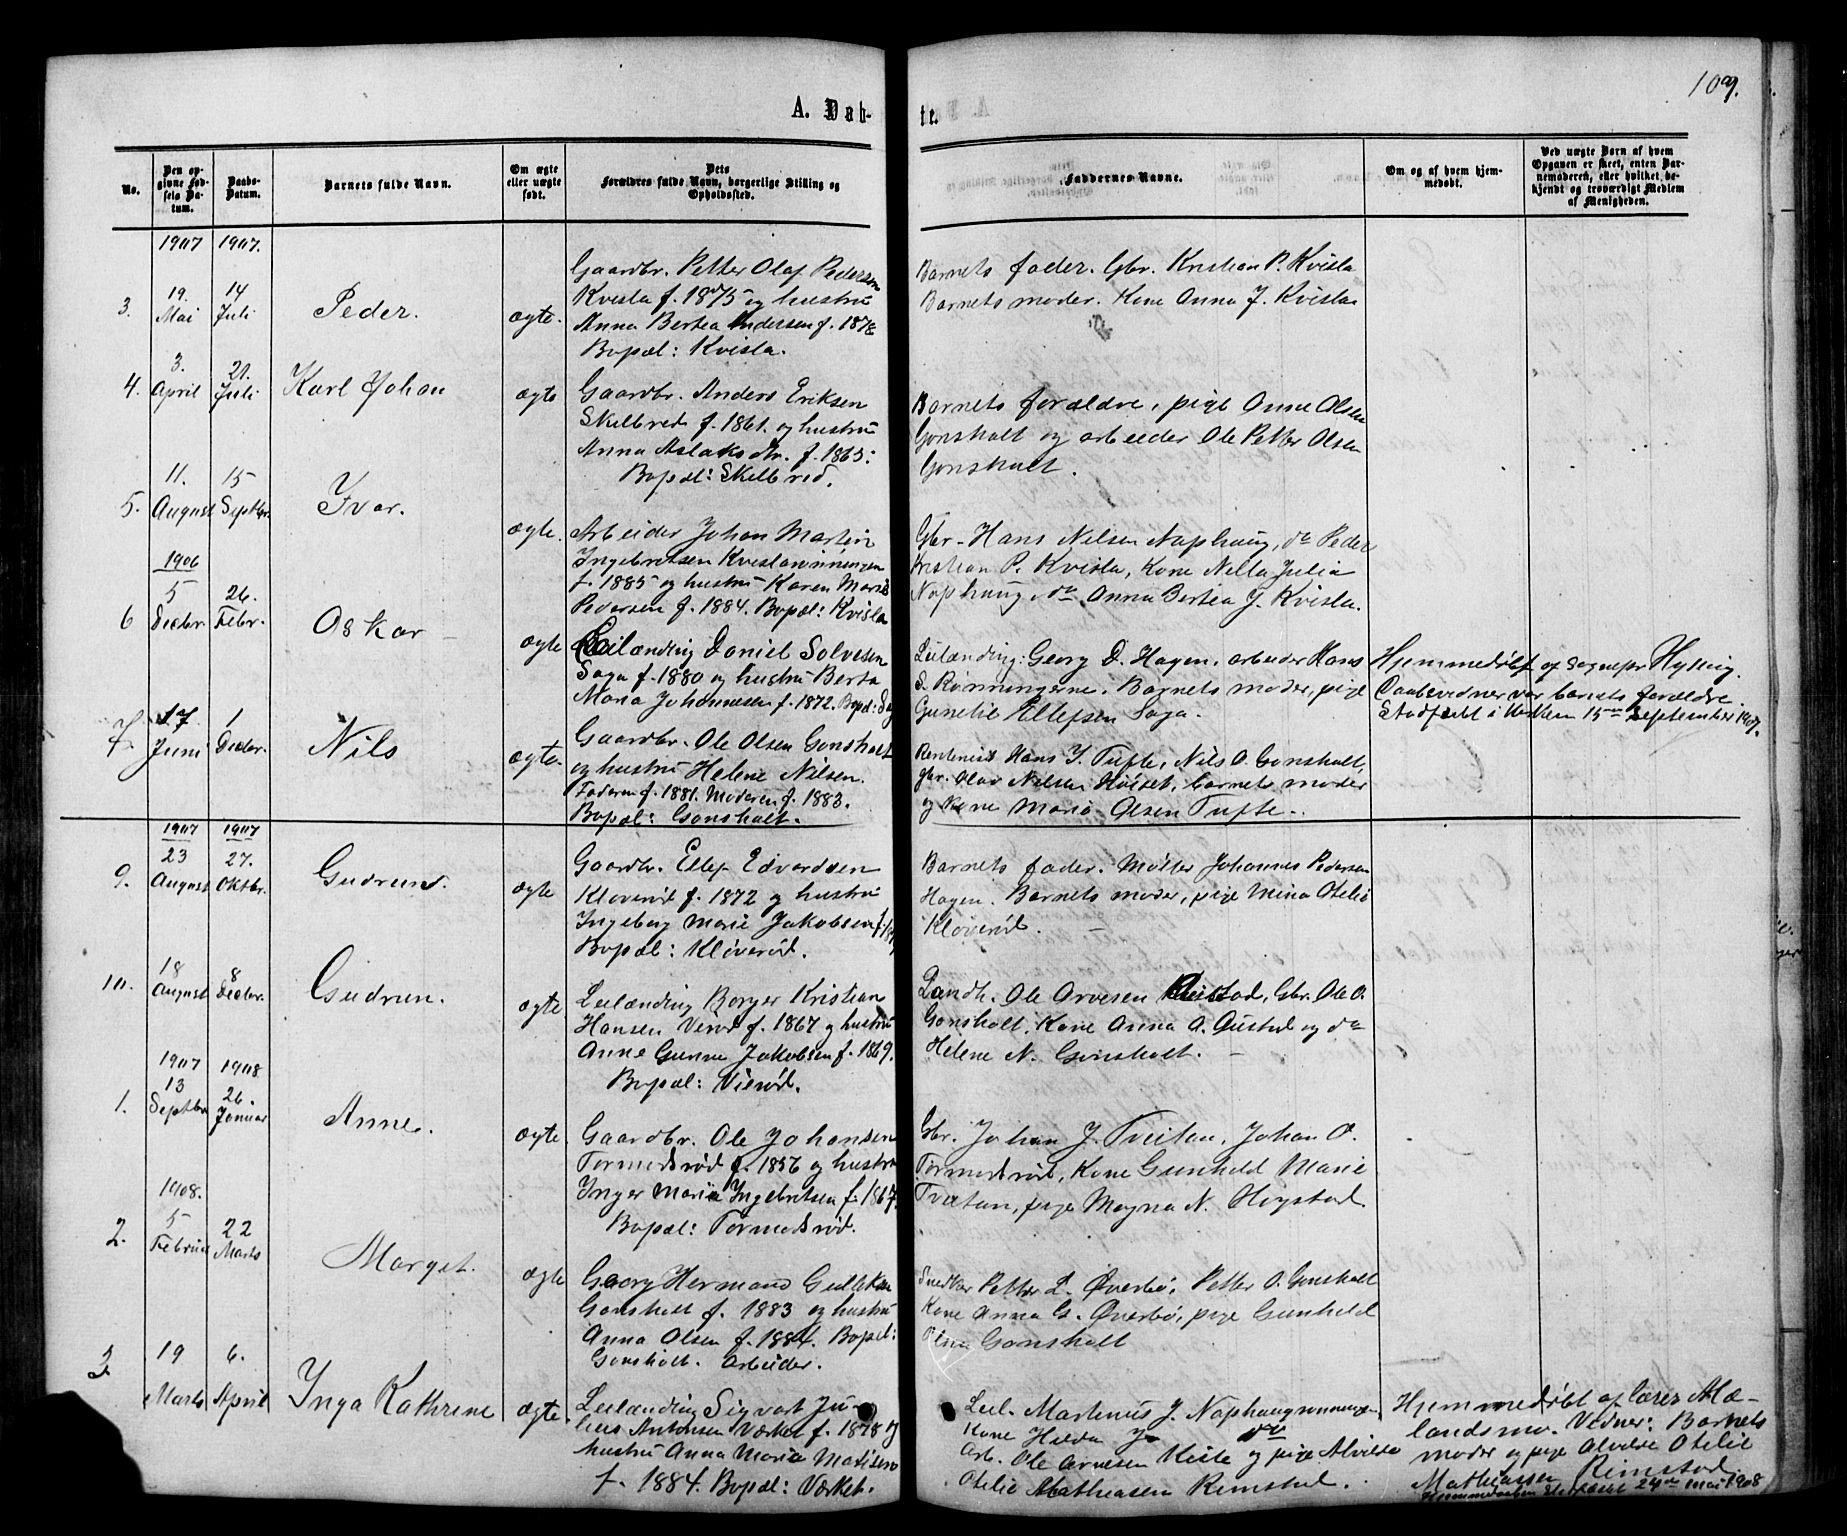 109.
A. Døb-
te.
No.
Den op-
givne Fød-
sels Da-
tum.
Daabs-
Datum.
Barnets fulde Navn.
Om ægte
eller uægte
født.
Dets
Forældres fulde Navn, borgerlige Stilling og
Opholdssted.
Faddernes Navne.
Om og af hvem hjem-
medøbt.
Ved uægte Børn af hvem
Opgaven er skeet, enten Bar-
nemoderen, eller hvilket be-
kjendt og troværdigt Medlem
af Menigheden.
1907 1907.
3. 19. Mai 14 Juli Peder. ægte.
Gaardbr. Petter Olaf Pedersen
Kvisla f. 1875 og hustru
Anna Bertea Andersen f. 1878
Bopæl: Kvisla.
Barnets fader. Gbr. Kristian P. Kvisla
Barnets moder. Kone Anna J. Kvisla
4. 3. April 21. Juli Karl Johan ægte
Gaardbr. Anders Eriksen
Skelbred f. 1861. og hustru
Anna Aslaksdtr. f. 1865:
Bopæl: Skelbred.
Barnets forældre, pige Anne Olsen
Gonsholt og arbeider Ole Petter Olsen
Gonsholt.
5. 11. August 15 Septbr. Ivar. ægte.
Arbeider Johan Martin
Ingebretsen Kvislarønningen
f. 1885 og hustru Karen Marie
Pedersen f. 1884. Bopæl: Kvisla
Gbr. Hans Nilsen Naphaug, do Peder
Kristian P. Kvisla, Kone Nella Julia
Naphaug, do Anna Bertea J. Kvisla.
1906
6 5 Decbr. 26. Febr. Oskar ægte
Leilænding Daniel Solvesen
Saga f. 1880 og hustru Berta
Maria Johannesen f. 1872. Bopæl: Saga
Leilænding. Georg D. Hagen, arbeider Hans
S. Rønningerne. Barnets moder, pige
Gunelie Ellefsen Saga.
Hjemmedøbt af sognepr Hylling.
Daabsvidner var barnets forældre.
Stadfæstet i kirken 15de September 1907.
7. 17 Juni 1 Decbr. Nils ægte.
Gaardbr. Ole Olsen Gonsholt
og hustru Helene Nilsen.
Faderen f. 1881. Moderen f. 1883.
Bopæl: Gonsholt.
Rentenist Hans J. Tufte, Nils O. Gonsholt,
gbr. Olav Nilsen Høiset, barnets moder
og kone Maria Olsen Tufte.
1907 1907
9. 23 August 27. Oktbr. Gudrun. ægte
Gaardbr. Ellef Edvardsen
Kløverød f. 1872 og hustru
Ingeborg Marie Jakobsen
Bopæl: Kløverød.
Barnets fader. Møller Johannes Pedersen
Hagen. Barnets moder, pige Mina Otelie
Kløverød.
10. 18 August 8 Decbr. Gudrun. ægte
Leilænding Borger Kristian
Hansen Vierød f. 1867 og hustru
Anne Gunne Jakobsen f. 1869.
Bopæl: Vierød.
Landh. Ole Arvesen, Gbr. Ole O.
Gonsholt, Kone Anna A. og do
Helene N. Gonsholt.
1907 1908
1. 13 Septbr 26. Januar Anne. ægte.
Gaardbr. Ole Johansen
Tormodsrød f. 1856 og hustru
Inger Maria Ingebretsen f. 1867.
Bopæl: Tormodsrød.
Gbr. Johan J. Tveitan, Johan O.
Tormodsrød, Kone Gunhild Marie
Tveitan, pige Magna N. Hogstad.
1908.
2. 5 Februar 22 Marts Margit. ægte
Georg Hermand Gulliksen
Gonsholt f. 1883 og hustru
Anna Olsen f. 1884. Bopæl:
Gonsholt. Arbeider.
Snedker Petter L. Øverbø, Petter O. Gonsholt
Kone Anna G. Øverbø, pige Gunhild
Olsen Gonsholt
3 19 Marts 6. April Inga Kathrine ægte.
Leilænding Sigvart Ju-
lius Antonsen Værket f. 1878 og
hustru Anna Maria Matisen
f. 1884. Bopæl: Værket.
Leil. Martinus J. Naphaugrønningen,
Kone Hilda J. do
Arb. Ole Arnesen Kiste og pige Alvilda
Otelie Mathiasen Rimstad.
Hjemmedøbt af lærer Mæ-
landsmo. Vidner: Barnets
moder og pige Alvilde Otelie
Mathiassen Rimstad.
Hjemmedaaben stadfæstet 24de mai 1908